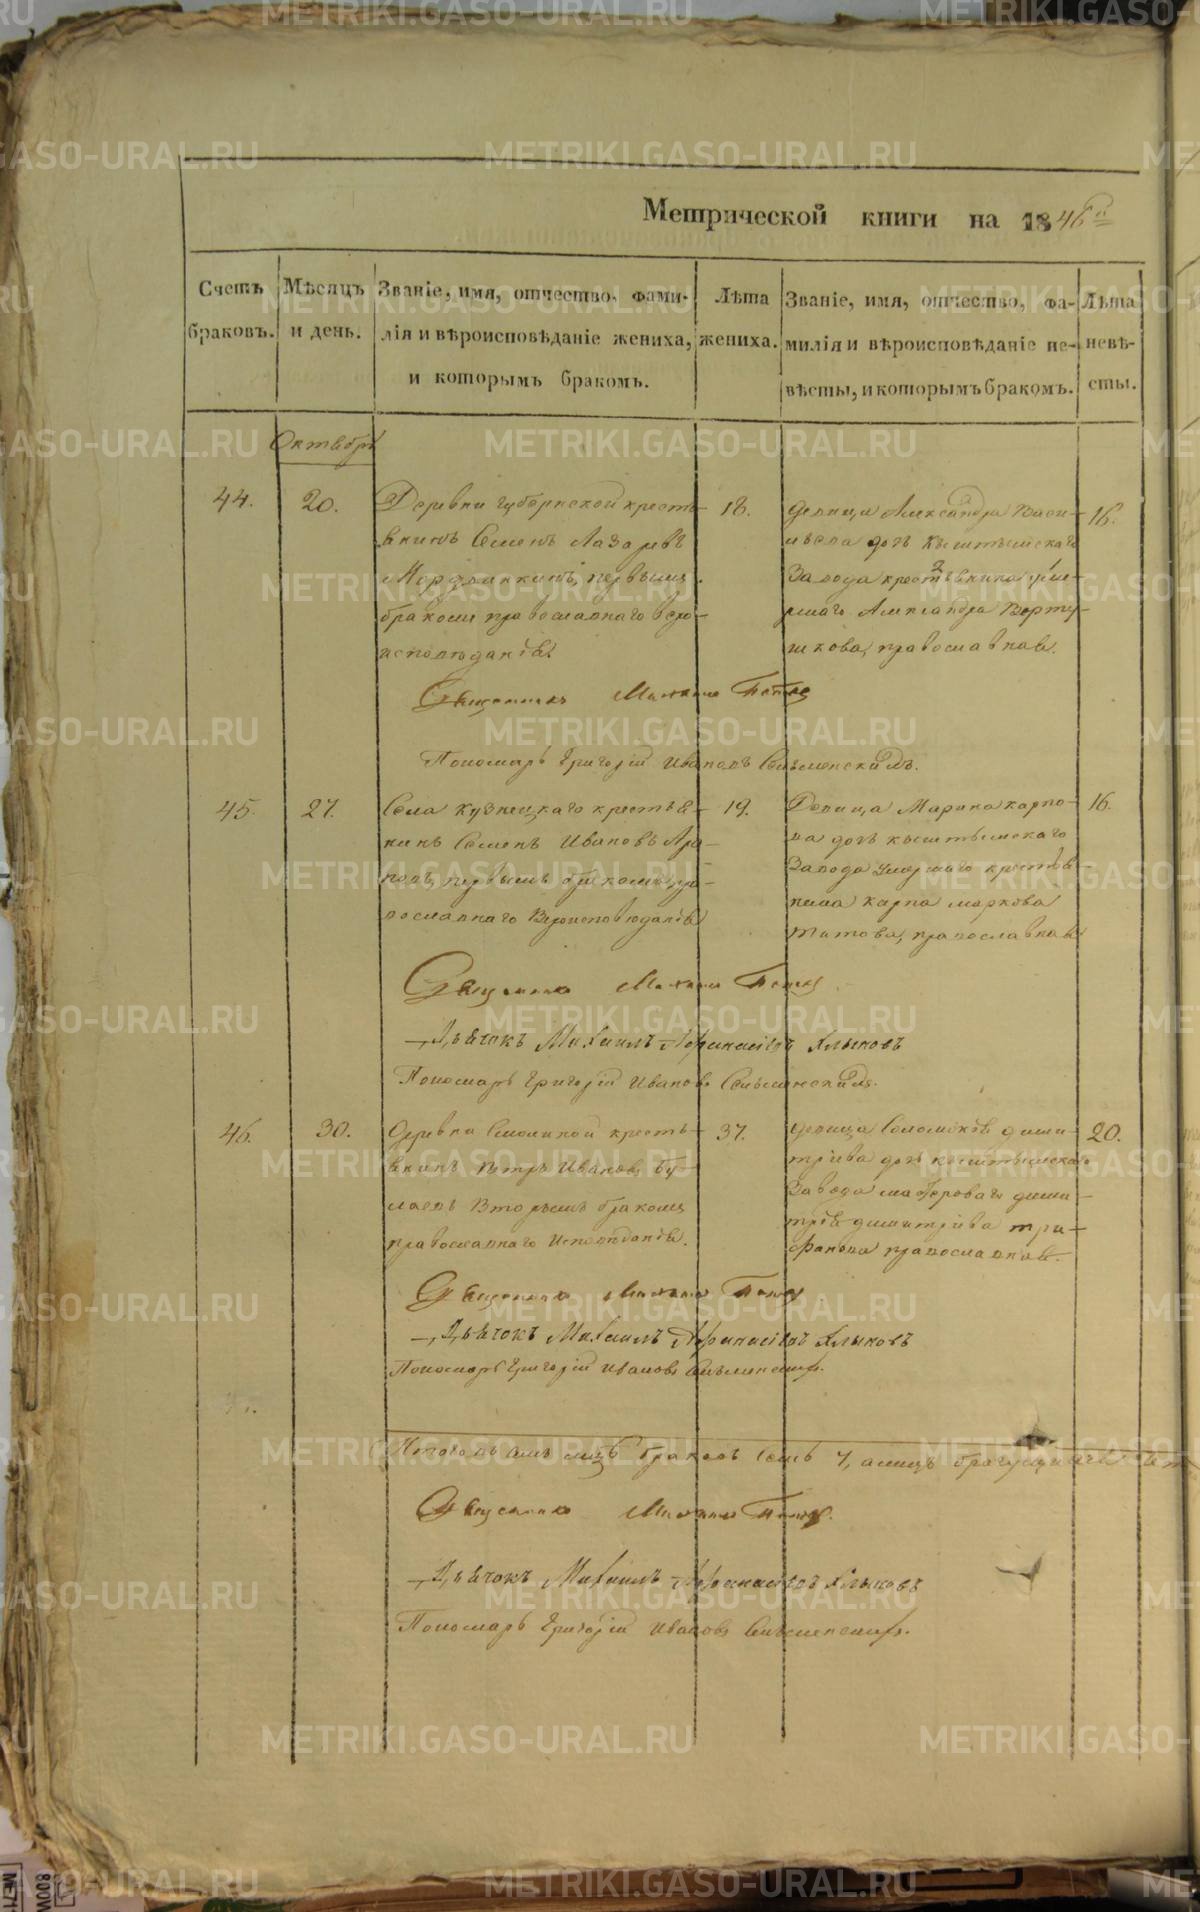 Метрической книги на 1846й
Счетъ браковъ.
Мѣсяцъ и день.
Званіе, имя, отчество, фами-
лія и вѣроисповѣданіе жениха,
и которымъ бракомъ.
Лѣта
жениха.
Званіе, имя, отчество, фа-
милія и вѣроисповѣданіе не-
вѣсты, и которымъ бракомъ.
Лѣта
невѣ-
сты.
Октябрь
44.
20.
Деревни Губернской кресть-
янинъ Семенъ Лазаревъ
первымъ
бракомъ православнаго веро-
исповѣданія.
18.
Девица Александра Васи-
льева дочь Кыштымскаго
Завода крестьянина умер-
шаго Александра Верту-
шкова, православная.
16.
Священникъ Михаилъ
Пономарь Григорій Ивановъ
45.
27.
Села Кузнецкаго крестья-
нинъ Семенъ Ивановъ Ара-
повъ, первымъ бракомъ, пра-
вославнаго Вероисповѣданія
19.
Девица Марина Карпо-
ва дочь Кыштымскаго
Завода умершаго крестья-
нина Карпа Маркова
Титова, православная
16.
Священникъ Михаилъ
Дьячокъ Михаилъ Афанасіевъ Хлыновъ
Пономарь Григорій Ивановъ
46.
30.
Деревни Смолиной кресть-
янинъ Петръ Ивановъ Бу-
лаевъ Вторымъ бракомъ
православнаго Исповѣданія.
37.
девица Соломія дими-
тріева дочь Кыштымскаго
Завода мастероваго дими-
трія димитріева три-
фанова православная.
20.
Священникъ Михаилъ
Дьячокъ Михаилъ Афанасіевъ Хлыновъ
Пономарь Григорій Ивановъ
Итого въ семъ браковъ семь 7, а лицъ
Священникъ Михаилъ
Дьячокъ Михаилъ Афанасіевъ Хлыновъ
Пономарь Григорій Ивановъ
METRIKI.GASO-URAL.RU